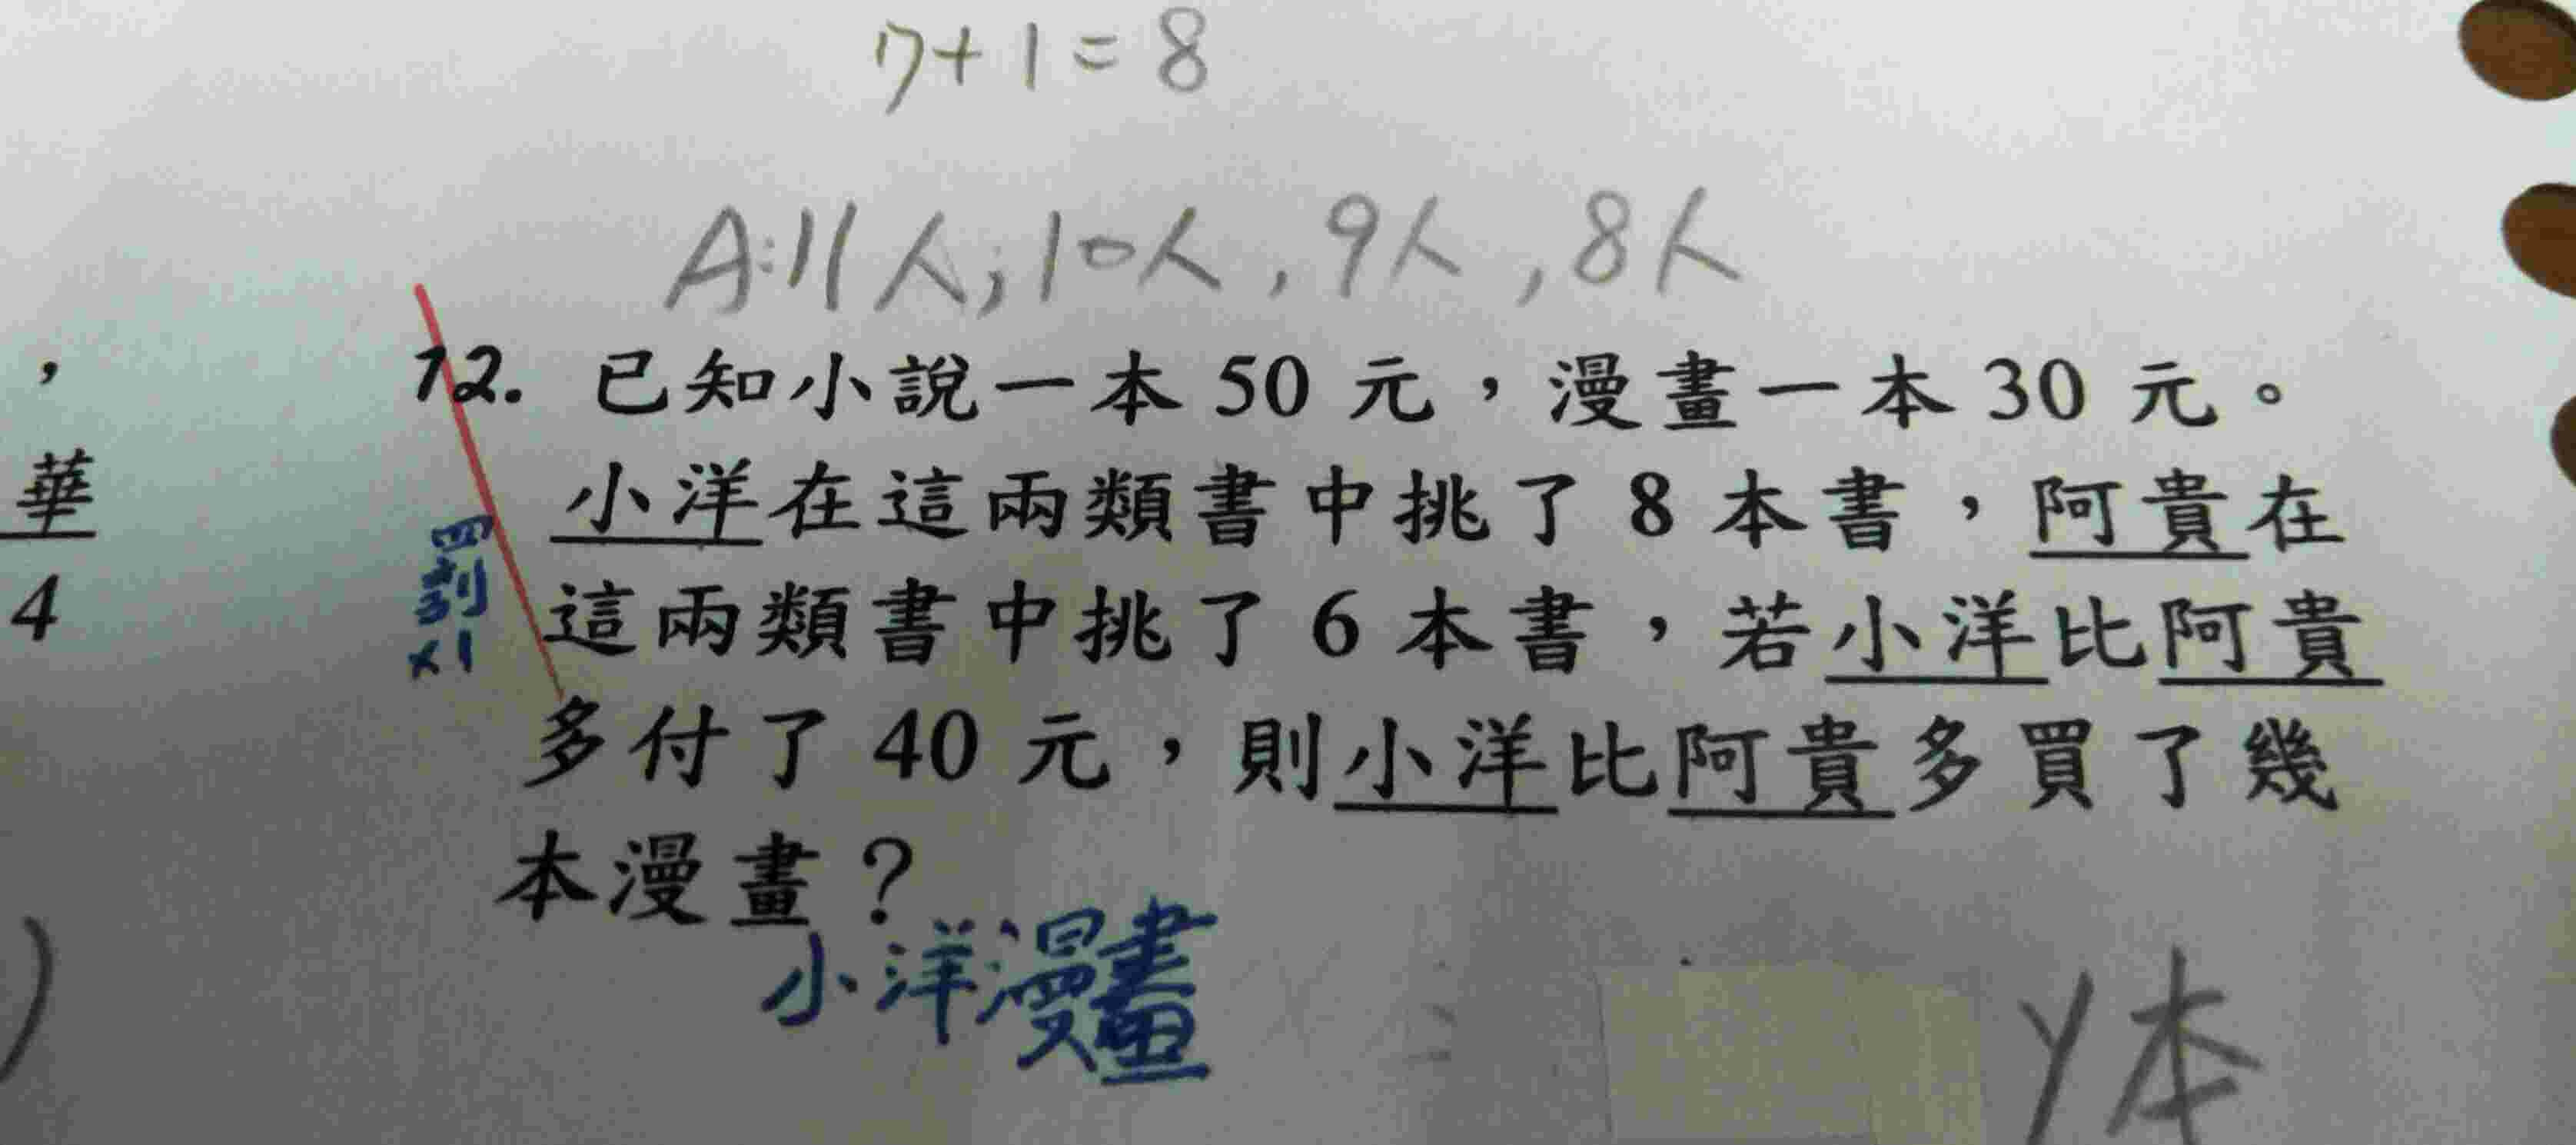 7+1=8
A:11人;10人,9人,8人
,
12. 已知小說一本50元,漫畫一本30元。
華
小洋在這兩類書中挑了8本書,阿貴在
4
這兩類書中挑了6本書,若小洋比阿貴
多付了40元,則小洋比阿貴多買了幾
本漫畫?
小洋漫畫
)
y本